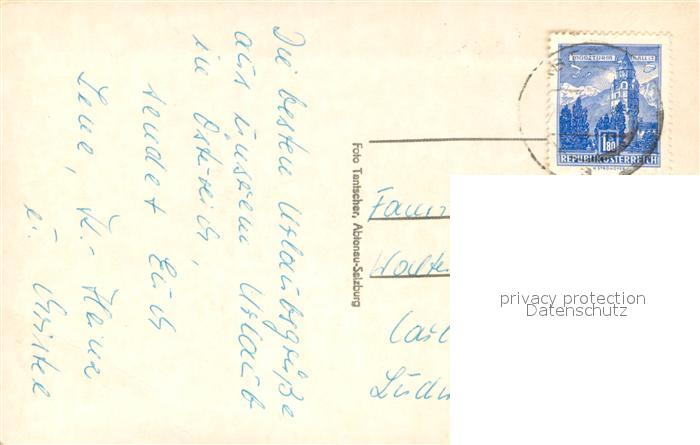 Die besten Urlaubsgrüße
aus unserem Urlaub
in Österreich,
sendet Euch
Lene, K.-Heinz
u. Christel
Foto Tantscher, Abtenau-Salzburg
MÜNZTURM HALL I.T.
1.80
REPUBLIK ÖSTERREICH
H. STROHOFER
Fami
Walte
Carl
Ludw
privacy protection
Datenschutz